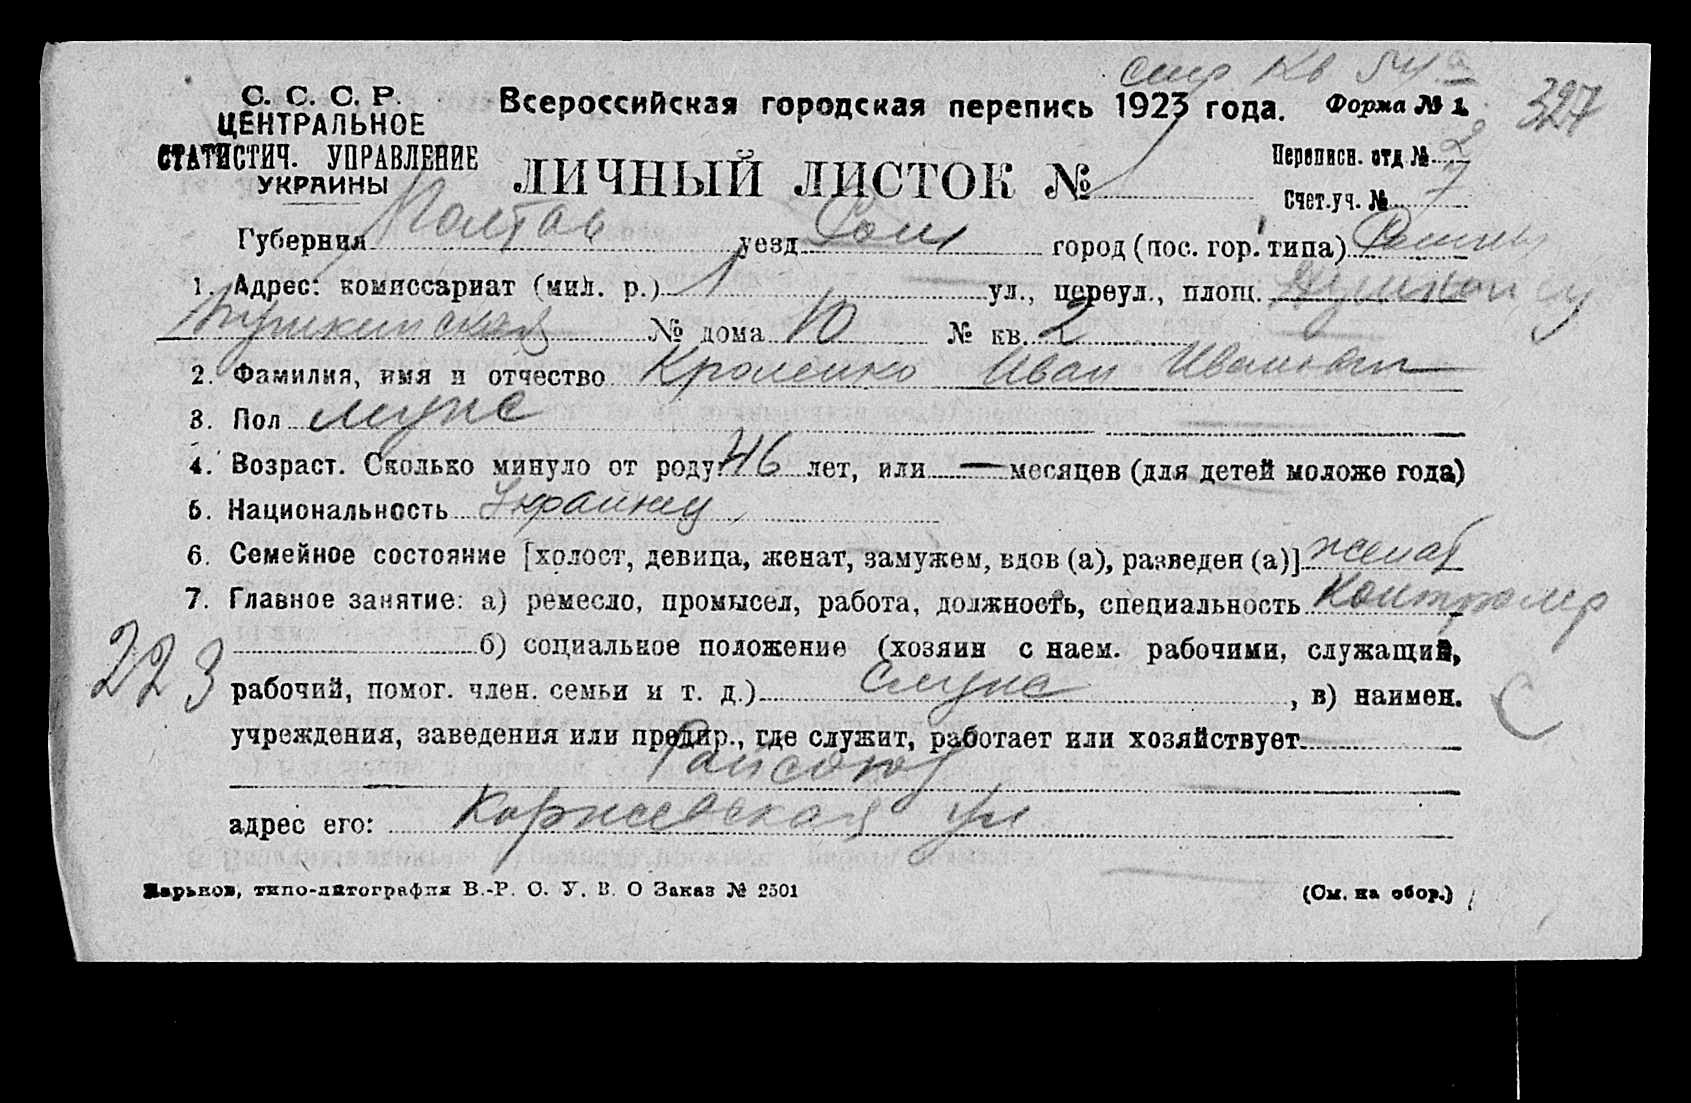 стр. Кв 54а
С. С. С. Р.
ЦЕНТРАЛЬНОЕ
СТАТИСТИЧ. УПРАВЛЕНИЕ
УКРАИНЫ
Всероссийская городская перепись 1923 года. Форма № 1. 327
ЛИЧНЫЙ ЛИСТОК № 1
Переписн. отд № 2
Счет.уч. № 7
Губерния Полтав уезд Ром город (пос. гор. типа) Ромны
1. Адрес: комиссариат (мил. р.) 1 ул., переул., площ.
Пушкинская № дома 10 № кв. 2
2. Фамилия, имя и отчество Кроленко Иван Иванович
3. Пол мужс
4. Возраст. Сколько минуло от роду 46 лет, или — месяцев (для детей моложе года)
5. Национальность Украинец
6. Семейное состояние [холост, девица, женат, замужем, вдов (а), разведен (а)] женат
7. Главное занятие: а) ремесло, промысел, работа, должность, специальность Контролер
б) социальное положение (хозяин с наем. рабочими, служащий,
223 рабочий, помог. член. семьи и т. д.) Служс, в) наимен. С
учреждения, заведения или предпр., где служит, работает или хозяйствует
Райсоюз
адрес его: Коржевская ул
Харьков, типо-литография В.-Р. О. У. В. О Заказ № 2501 (См. на обор.)